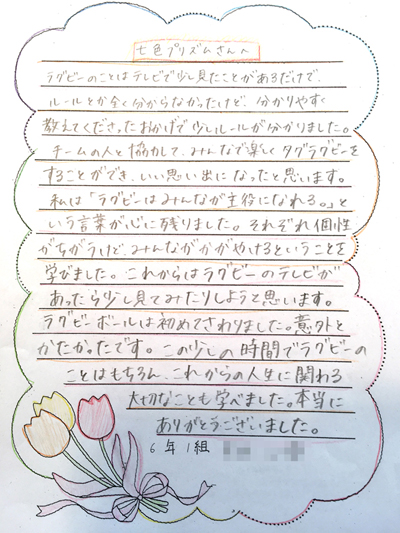 七色プリズムさんへ
ラグビーのことはテレビで少し見たことがあるだけで、
ルールとか全く分からなかったけど、分かりやすく
教えてくださったおかげで少しルールが分かりました。
チームの人と協力して、みんなで楽しくタグラグビーを
することができ、いい思い出になったと思います。
私は「ラグビーはみんなが主役になれる。」と
いう言葉が心に残りました。それぞれ個性
がちがうけど、みんながかがやけるということを
学びました。これからはラグビーのテレビが
あったら少し見てみたりしようと思います。
ラグビーボールは初めてさわりました。意外と
かたかったです。この少しの時間でラグビーの
ことはもちろん、これからの人生に関わる
大切なことも学べました。本当に
ありがとうございました。
6年1組